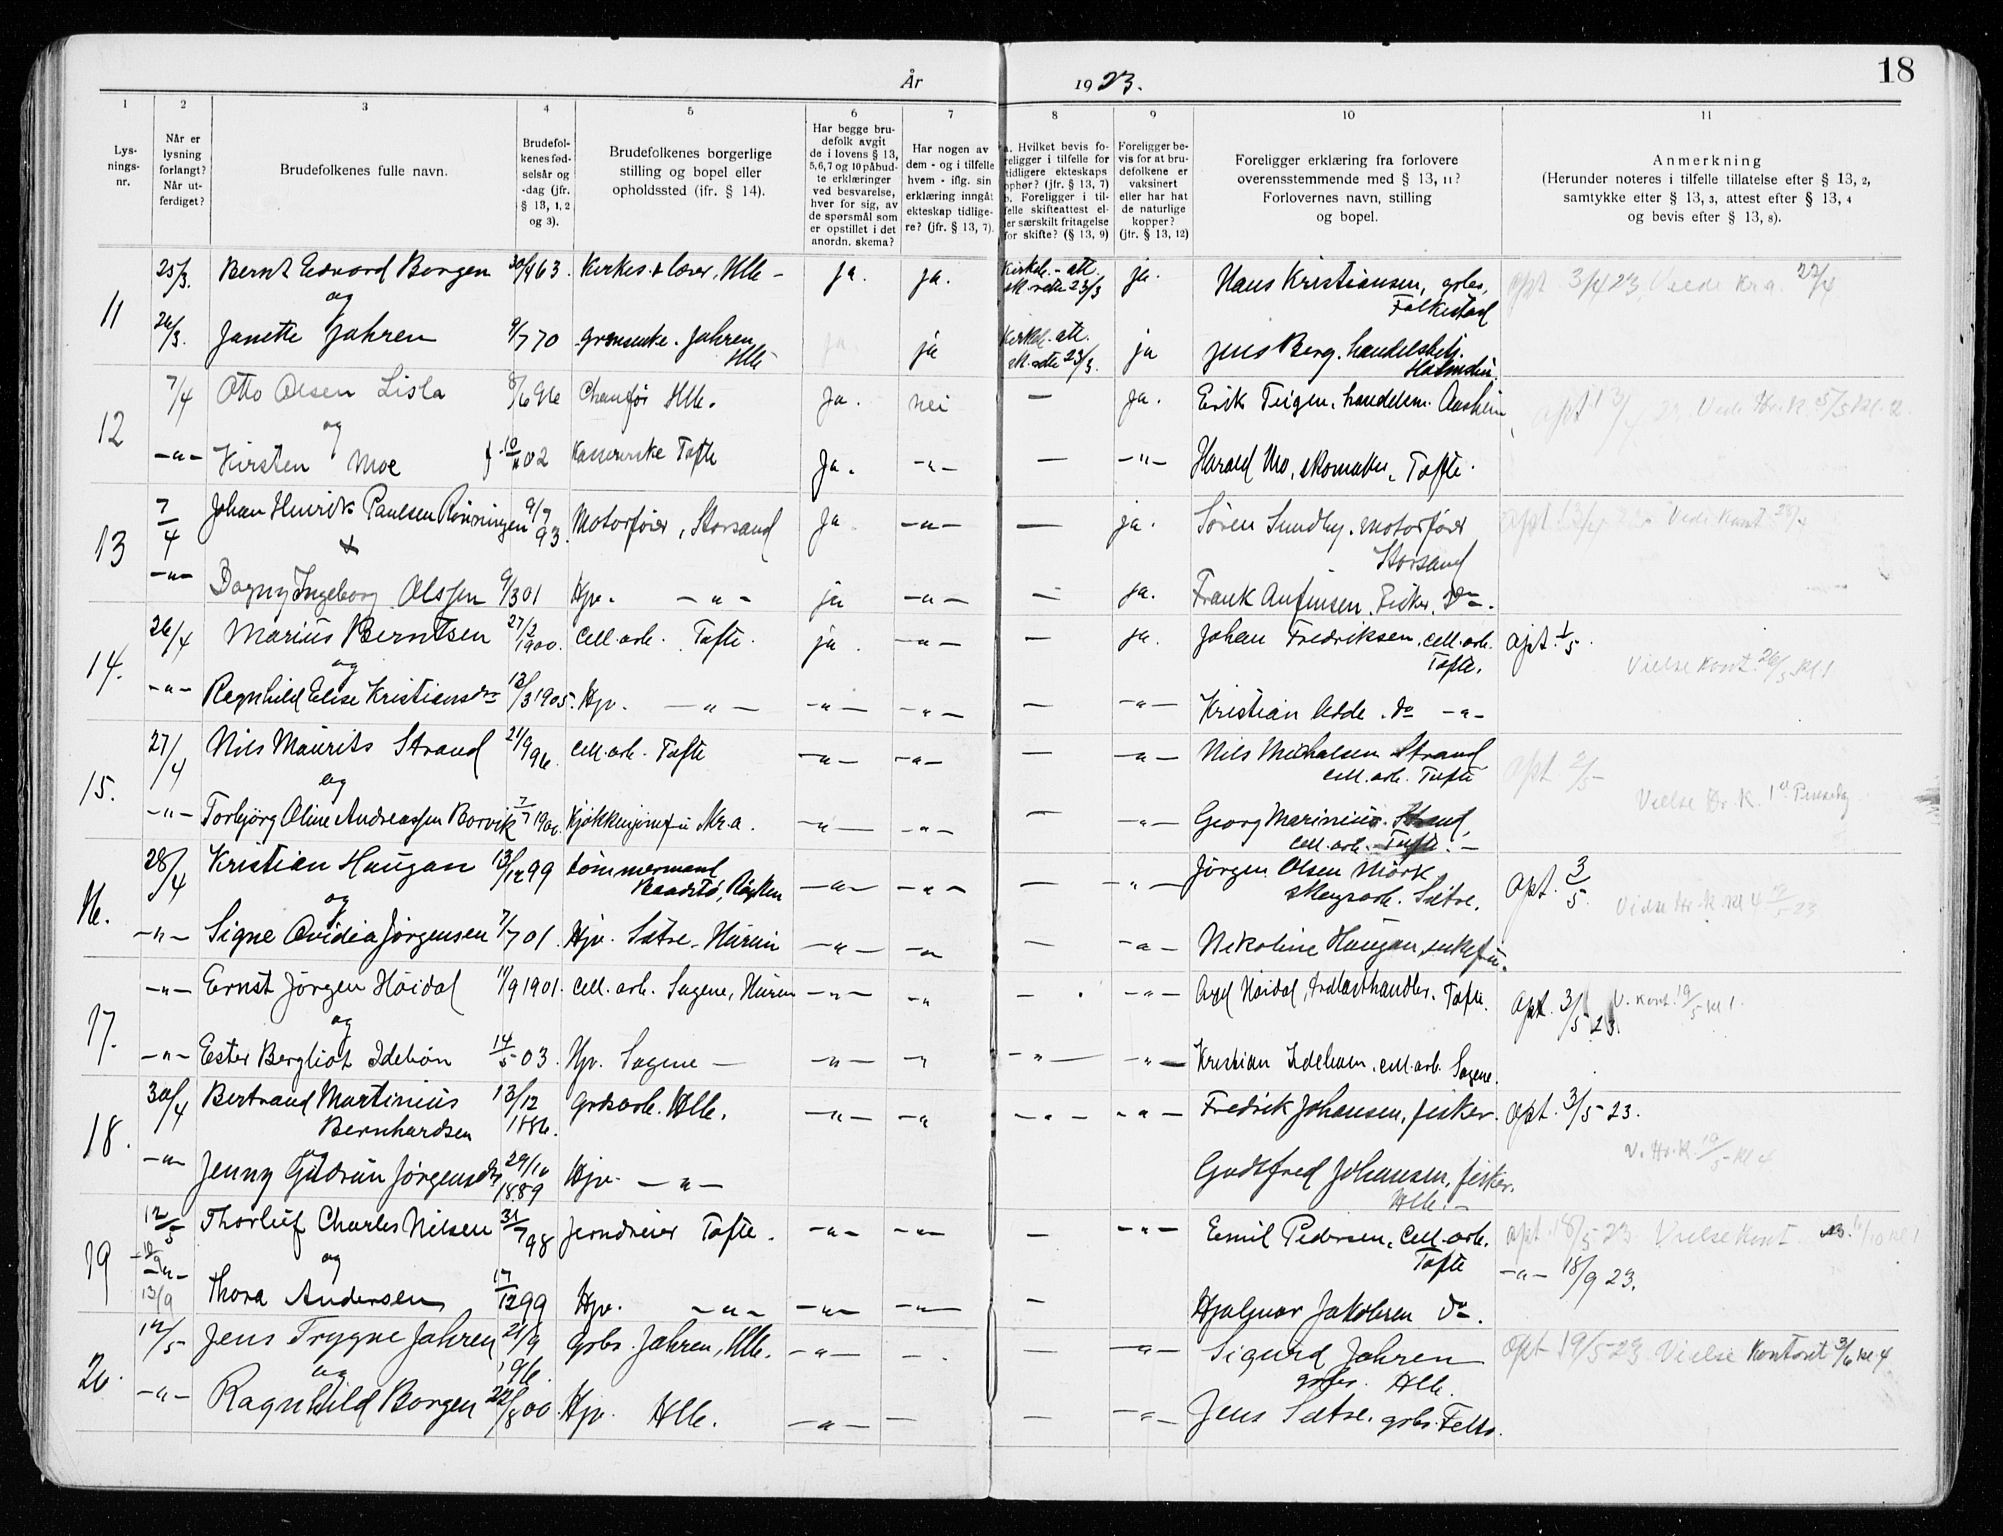 18
År 1923.
1 2 3 4 5 6 7 8 9 10 11
Lys-
nings-
nr.
Når er
lysning
forlangt?
Når ut-
ferdiget?
Brudefolkenes fulle navn.
Brudefol-
kenes fød-
selsår og
-dag (jfr.
§ 13, 1, 2
og 3).
Brudefolkenes borgerlige
stilling og bopel eller
opholdssted (jfr. § 14).
Har begge bru-
defolk avgit
de i lovens § 13,
5,6,7 og 10 påbud-
te erklæringer
ved besvarelse,
hver for sig, av
de spørsmål som
er opstillet i det
anordn. skema?
Har nogen av
dem - og i tilfelle
hvem - iflg. sin
erklæring inngåt
ekteskap tidlige-
re? (jfr. § 13, 7).
a. Hvilket bevis fo-
religger i tilfelle for
tidligere ekteskaps
ophør? (jfr. § 13, 7)
b. Foreligger i til-
felle skifteattest el-
ler særskilt fritagelse
for skifte? (§ 13, 9)
Foreligger be-
vis for at bru-
defolkene er
vaksinert
eller har hat
de naturlige
kopper?
(jfr. § 13, 12)
Foreligger erklæring fra forlovere
overensstemmende med § 13, 11?
Forlovernes navn, stilling
og bopel.
Anmerkning
(Herunder noteres i tilfelle tillatelse efter § 13, 2,
samtykke etter § 13, 3, attest efter § 13, 4
og bevis efter § 13, 8).
11 25/3. Bernt Edvard Borgen 30/4 63. Kirkes. & lærer, Hlle - ja. ja. Kirkeb.-att. 23/3 ja. Hans Kristiansen, gbs, Falkestad opt. 3/4 23. Vielde Kra. 22/4
og
26/3. Janette Jahren 9/7 70 Jahren, Hlle ja ja Kirkeb. att. 23/3. ja Jens Berg. handelsbetj. Holmsbu.
12 7/4 Otto Olsen Lisla 8/6 96 Chauffør Hlle. Ja. nei — ja. Erik Teigen, handelsm. Aasheim opt 13/4 23. Viede Hr. K. 5/5 kl. 12
og
-"- Kirsten Moe 10/11 02 Kassererske Tofte Ja. -"- — -"- Harald Mo, skomaker, Tofte.
13 7/4 Johan Henrik Paulsen Rønningen 9/7 93. Motorfører, Storsand Ja -"- — ja. Søren Sundby. motorfører Storsand opt 13/4 23. Viede Kont. 28/4
&
-"- Dagny Ingeborg Olssen 9/3 01 Hjv. -"- ja -"- — ja. Frank Anfinsen, Fisker. Do -.
14. 26/4 Marius Berntsen 27/2 1900. Cell.arb. Tofte. ja. -"- — ja. Johan Fredriksen, cell.arb. Tofte. opt. 1/5.
og
Vielse Kont. 26/5 kl. 1
-"- Ragnhild Elise Kristiansdtr 13/3 1905. Hjv. -"- -"- -"- — -"- Kristian Udde. Do -"-
15. 27/4 Nils Maurits Strand 21/9 96. Cell.arb. Tofte -"- -"- — -"- Nils Michalsen Strand cell.arb. Tofte opt. 2/5-
og
Vielse Hr. K. 1ste Pinsedag
-"- Torbjørg Oline Andreassen Borvik 7/7 1900. Kr.a. -"- -"- — -"- Georg Marinius Strand, cell.arb. Tofte. -
16. 28/4 Kristian Haugan 13/12 99 tømmermand Baadstø, Røyken -"- -"- — -"- Jørgen Olsen Mørk skogsarb. Sætre. opt. 3/5.
og
Vielse Hr. K. kl 4 12/5 23
-"- Signe Ovidia Jørgensen 7/7 01. Hjv. Sætre, Hurum -"- -"- — -"- Nikoline Haugan, enkefru.
17. -"- Ernst Jørgen Høidal 11/9 1901. Cell.arb. Sagene, Hurum -"- -"- — -"- Axel Høidal, trælasthandler. Tofte. opt. 3/5 23. V. Kont. 19/5 kl 1.
og
-"- Ester Bergliot Idehøn 14/5 03. Hjv. Sagene — -"- -"- -"- -"- Kristian Idehøn, cell.arb. Sagene.
18. 30/4 Bertrand Martinius Bernhardsen 13/12 1886. Grdsarb. Hlle. -"- -"- -"- -"- Fredrik Johansen, fisker. opt. 3/5-23.
og
V. Hr. K. 19/5 kl 4
-"- Jenny Gudrun Jørgensdtr 29/10 1889 Hjv. -"- Gudtfred Johansen, fisker. Hlle. -
19 12/5 Thorleif Charles Nilsen 31/7 98 Jerndreier Tofte. -"- -"- — -"- Emil Pedersen, cell.arb. Tofte opt. 18/5-23 Vielse Kont.
og
-"- 18/9 23.
-"- 13/9 Thora Andersen 17/12 99 Hjv. -"- -"- -"- — Hjalmar Jakobsen Do -.
20. 12/5 Jens Trygve Jahren 21/9 96. Gbs. Jahren, Hlle. -"- - — -"- Sigurd Jahren gbs. Hlle. opt 19/5-23 Vielse Kontoret 3/6 kl. 4
og
-"- Ragnhild Borgen 22/8 00. Hjv. Hlle. -"- — — -"- Jens Sætre. gbs. Felts.